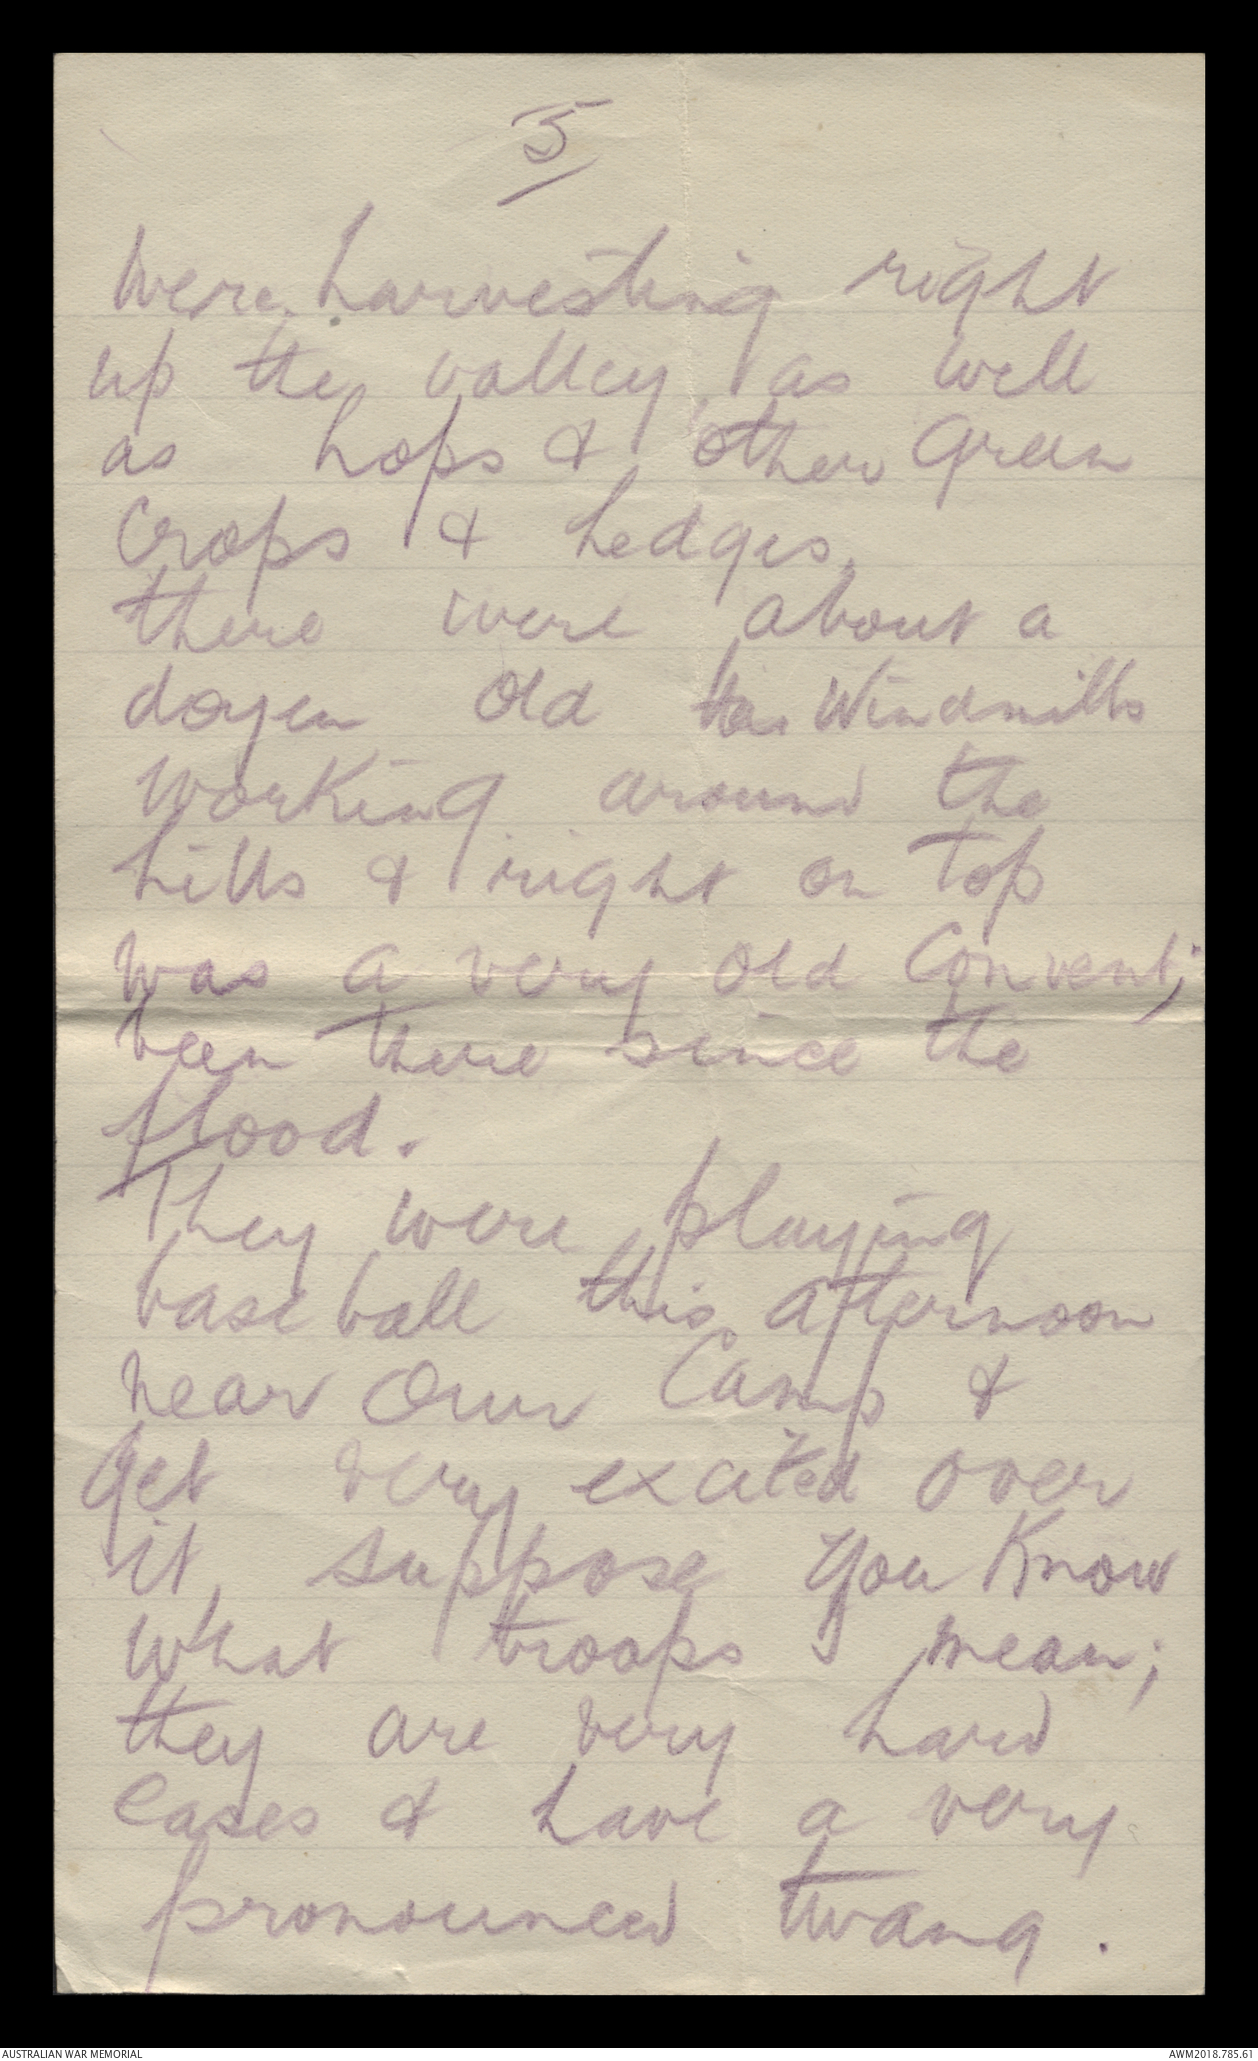 5
were harvesting right
up the valley, as well
as hops & other green
crops & hedges,
there were about a
dozen old Windmills
working around the
hills & right on top
was a very old Convent;
been there since the
flood.
They were playing
base ball this afternoon
near our Camp &
get very excited over
it, suppose you know
what troops mean;
they are very hard
Cases & have a very
pronounced twang.
AUSTRALIAN WAR MEMORIAL
AWM2018.785.61